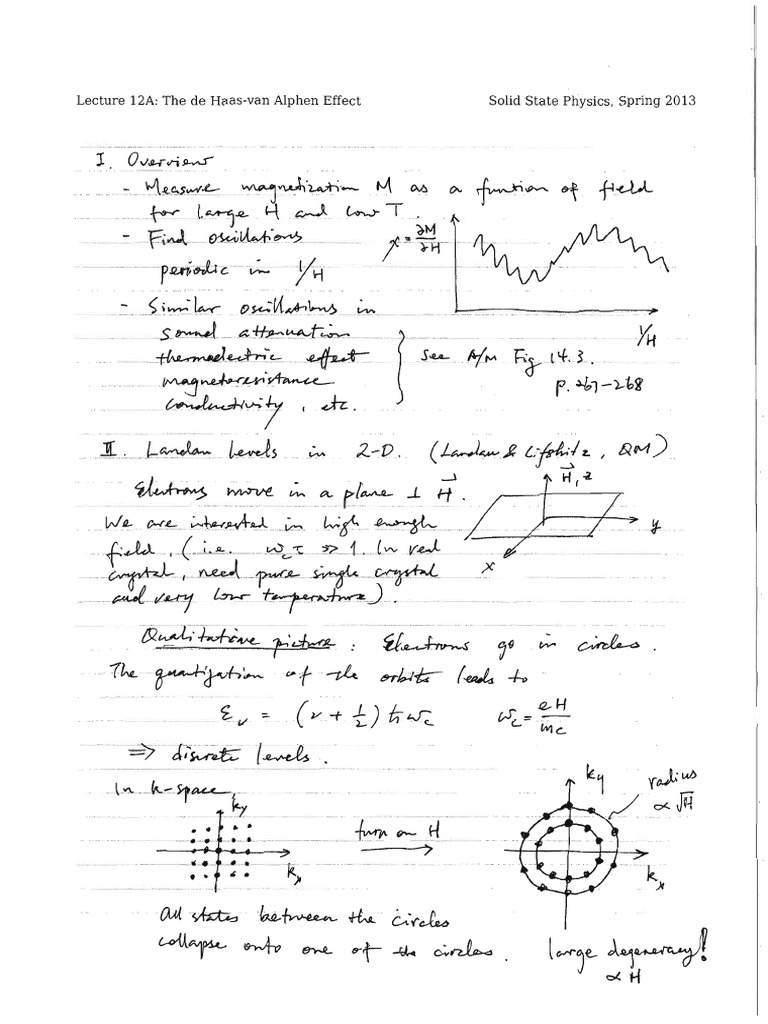 Lecture 12A: The de Haas-van Alphen Effect Solid State Physics, Spring 2013
I. Overview
- Measure magnetization M as a funtion of field
for large H and low T.
- Find oscillations
periodic in 1/H
χ = ∂M/∂H
1/H
- Similar oscillations in
sound attenuation
thermoelectric effect
magnetoresistance
conductivity, etc.
See A/M Fig 14.3.
p. 267-268
II. Landau levels in 2-D. (Landau & Lifshitz, QM)
Electrons move in a plane ⊥ H⃗.
H⃗, z
y
x
We are interested in high enough
field, (i.e. ω_c τ ≫ 1. In real
crystal, need pure single crystal
and very low temperature).
Qualitative picture: Electrons go in circles.
The quantization of the orbits leads to
ε_ν = (ν + 1/2) ħω_c ω_c = eH/mc
⟹ discrete levels.
In k-space,
k_y
k_x
turn on H
k_y
k_x
radius
∝ √H
All states between the circles
collapse onto one of the circles. large degeneracy!
∝ H